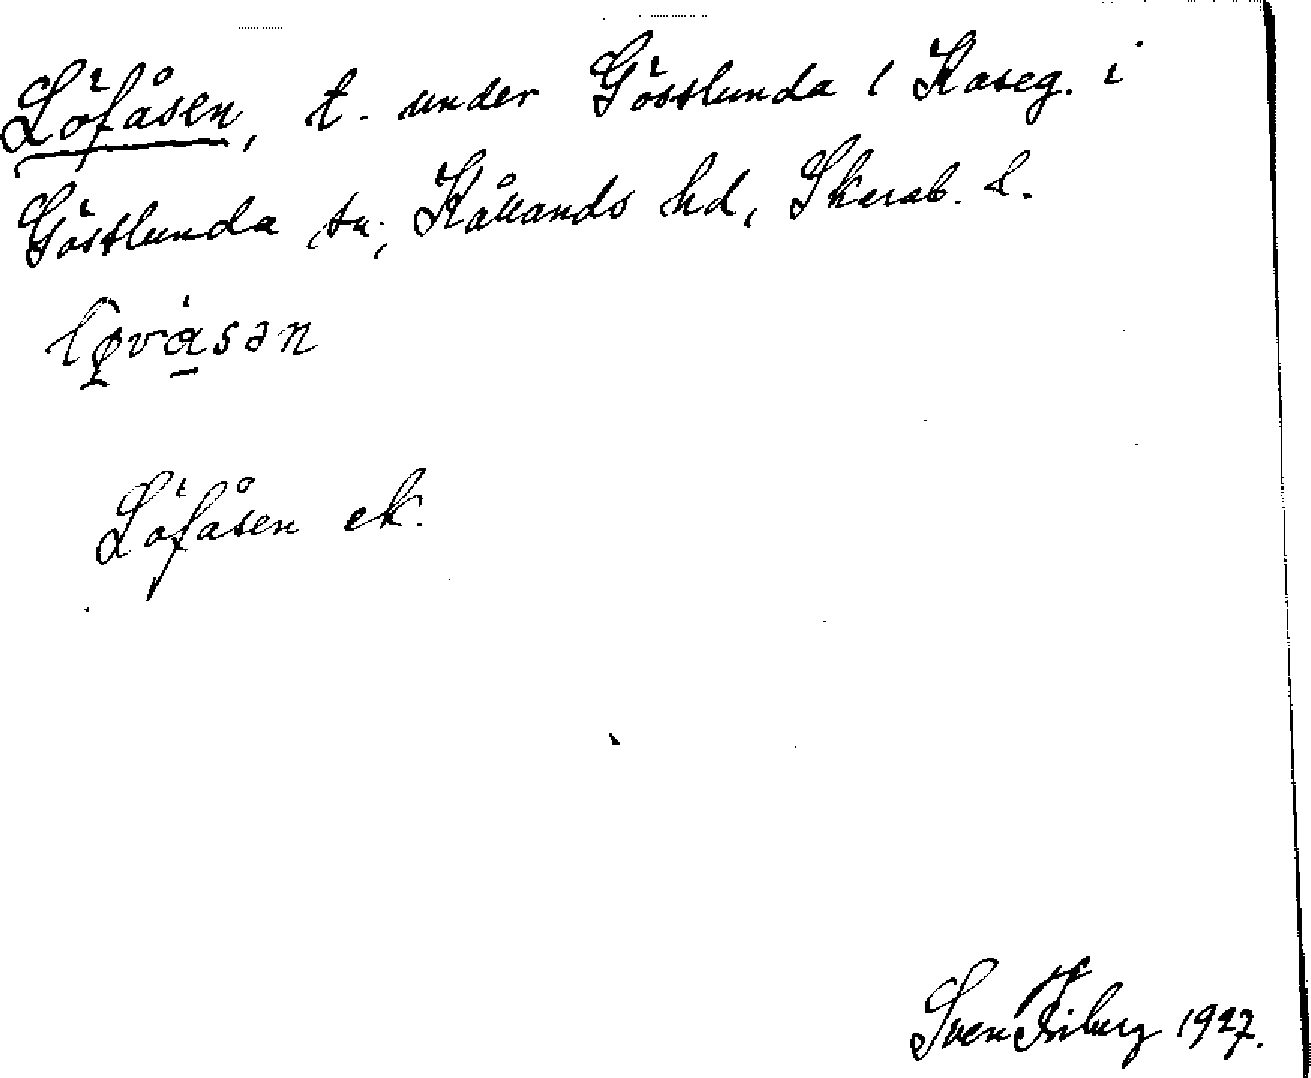 Löfåsen, t. under Gösslunda 1 Kaseg. i
Gösslunda sn; Kållands hd, Skarab. l.
lǫvåsən
Löfåsen ek.
Sven Friberg 1927.